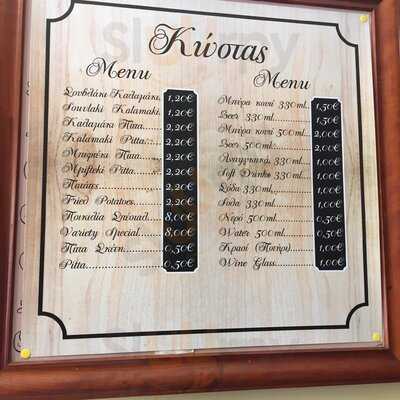 Κώστας
Menu
Σουβλάκι Καλαμάκι. 1,20€
Souvlaki Kalamaki. 1,20€
Καλαμάκι Πίτα....... 2,20€
Kalamaki Pitta...... 2,20€
Μπιφτέκι Πίτα....... 2,20€
Mpifteki Pitta....... 2,20€
Πατάτες................ 2,20€
Fried Potatoes....... 2,20€
Ποικιλία Σπέσιαλ.... 8,00€
Variety Special....... 8,00€
Πίτα Σκέτη........... 0,50€
Pitta.................... 0,50€
Menu
Μπύρα κουτί 330ml. 1,50€
Beer 330ml........... 1,50€
Μπύρα κουτί 500ml.. 2,00€
Beer 500ml........... 2,00€
Αναψυκτικά 330ml... 1,00€
Soft Drinks 330ml... 1,00€
Σόδα 330ml........... 1,00€
Soda 330ml........... 1,00€
Νερό 500ml........... 0,50€
Water 500ml.......... 0,50€
Κρασί (Ποτήρι)...... 1,00€
Wine Glass........... 1,00€